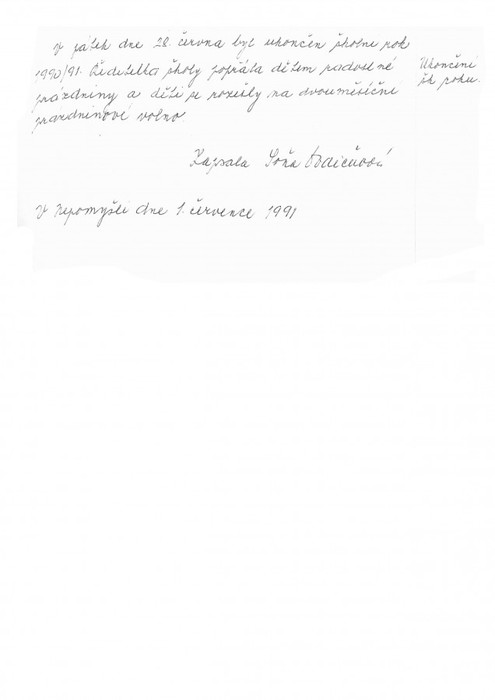 V pátek dne 28. června byl ukončen školní rok
1990/91. Ředitelka školy popřála dětem radostné
prázdniny a děti se rozešly na dvouměsíční
prázdninové volno
Ukončení
šk. roku.
Zapsala Soňa
V Nepomyšli dne 1. července 1991